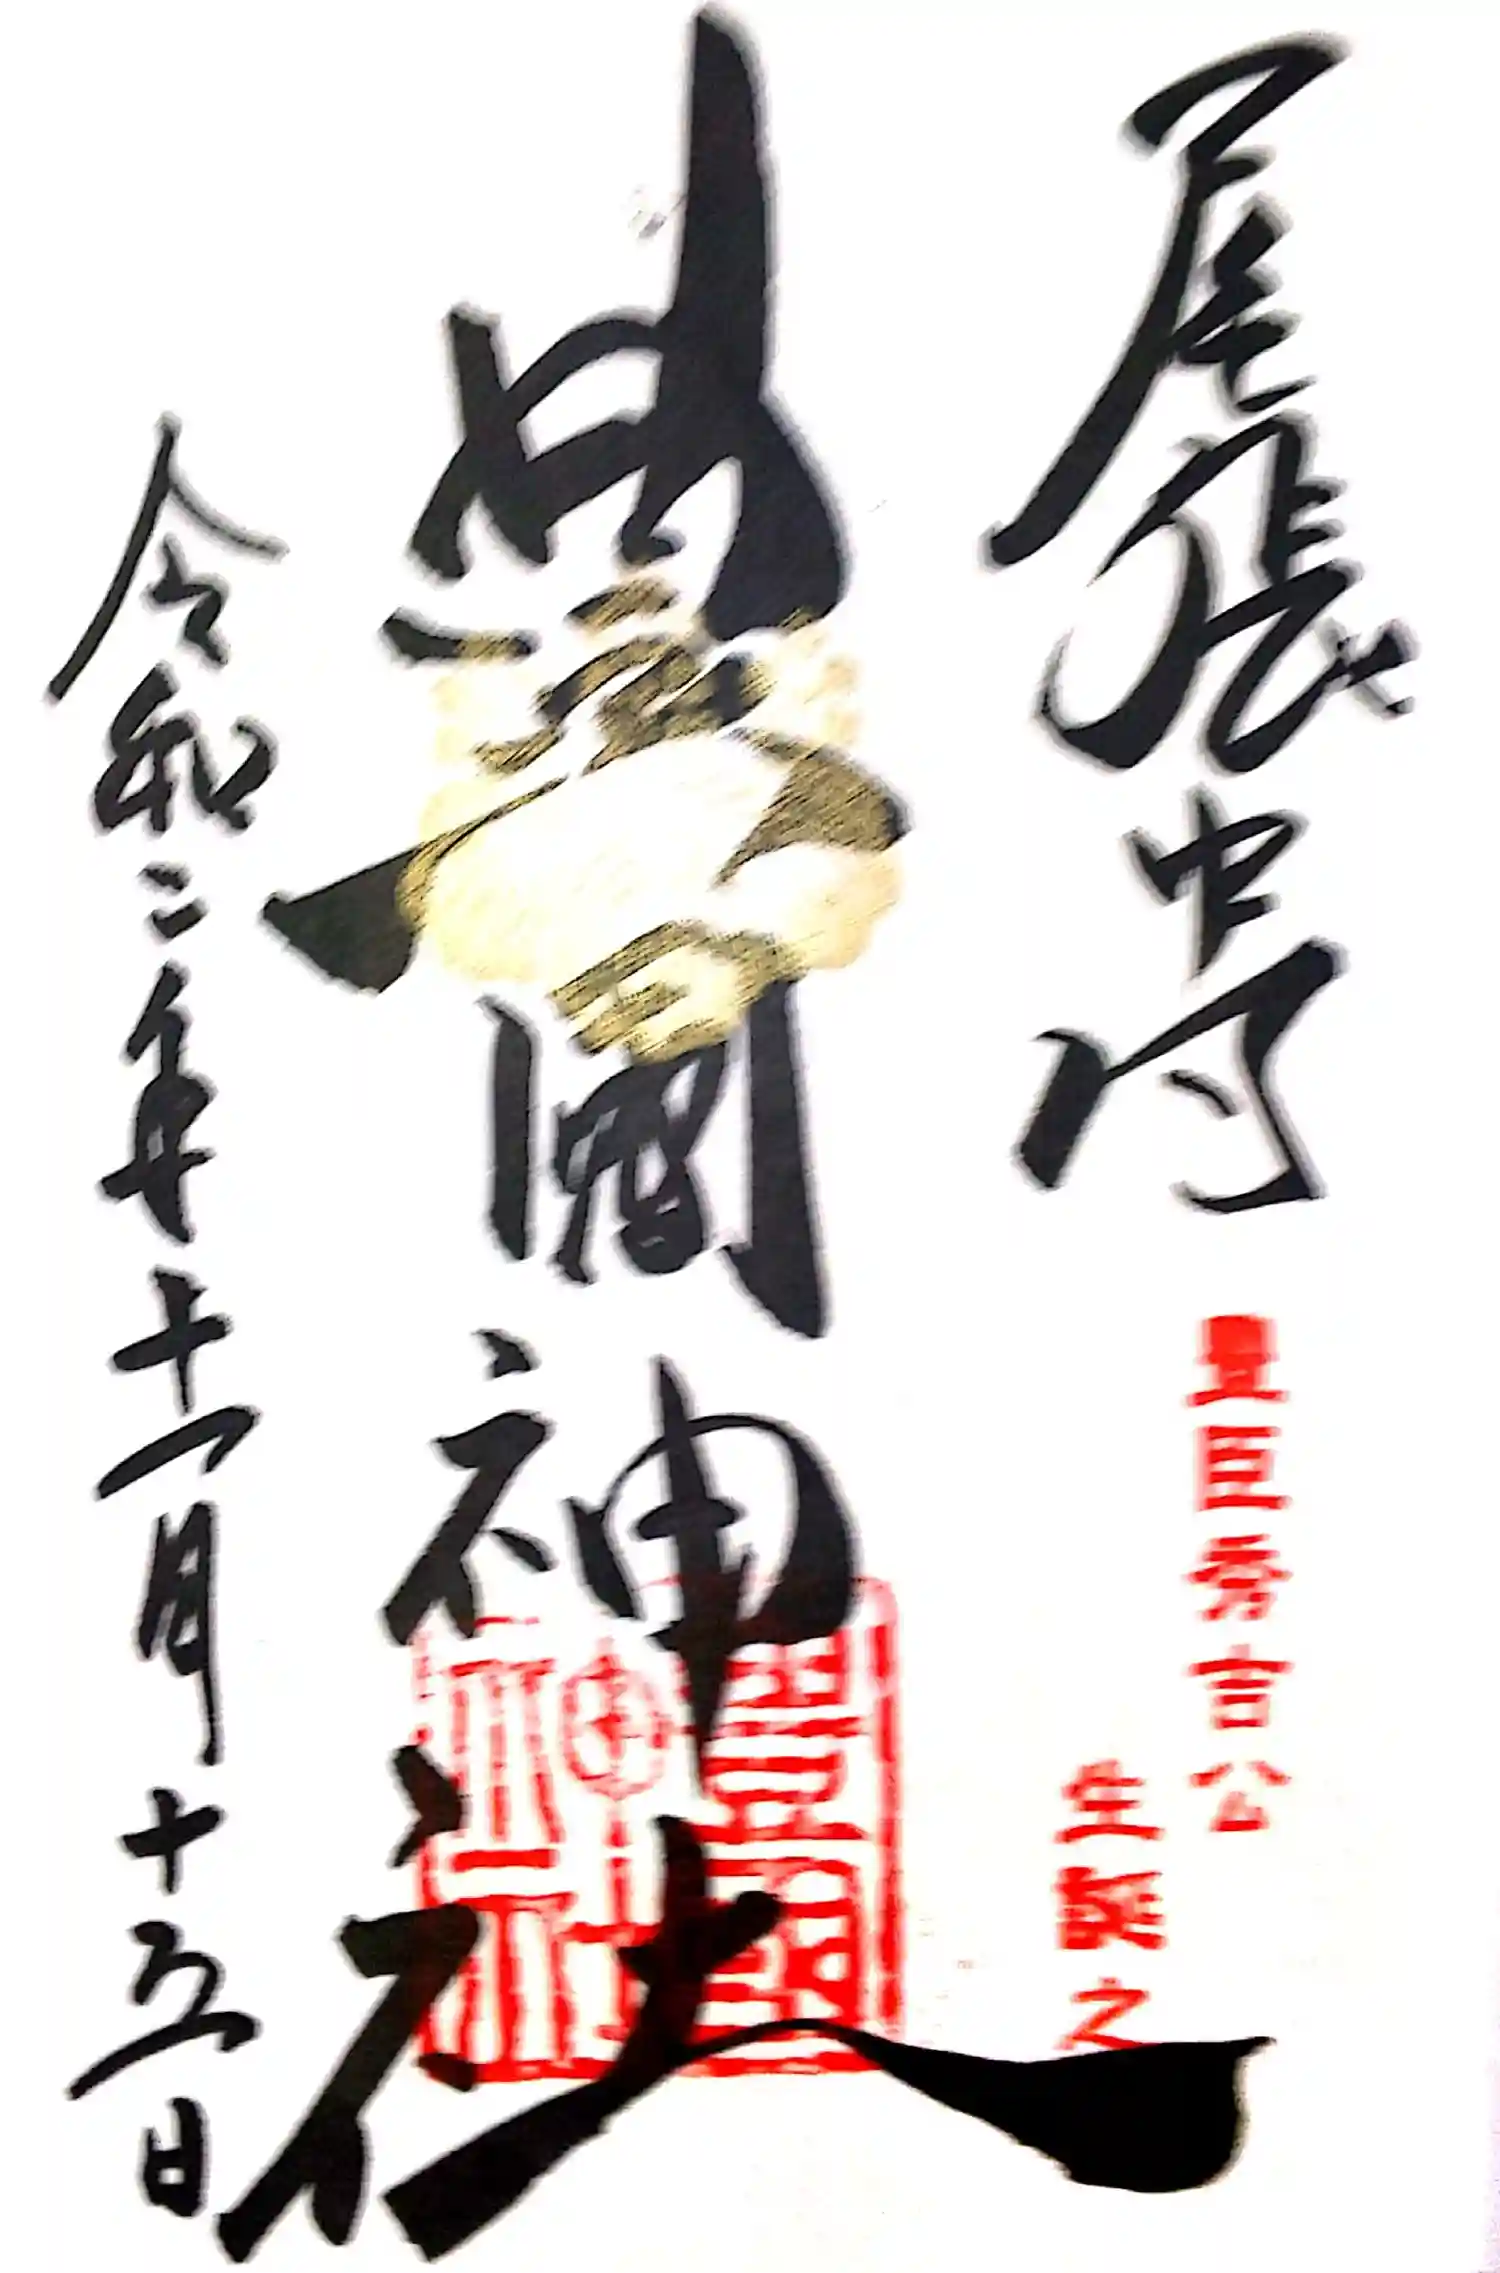 尾張中村
豊臣秀吉公
生誕之
豊國神社
豊國
神社
令和二年十一月十五日